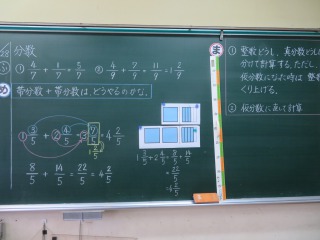 分数
① 4/7 + 1/7 = 5/7 ② 4/7 + 7/7 = 11/7 = 1 4/7
め 帯分数+帯分数は、どうやるのかな。
1 3/5 + 2 4/5 = 3 7/5 = 4 2/5
8/5 + 14/5 = 22/5 = 4 2/5
1 3/5 + 2 4/5 = 8/5 + 14/5
= 22/5
= 4 2/5
ま
① 整数どうし、真分数どうしに
分けて計算する。ただし、
仮分数になった時は 整数
くり上げる。
② 仮分数に直して計算